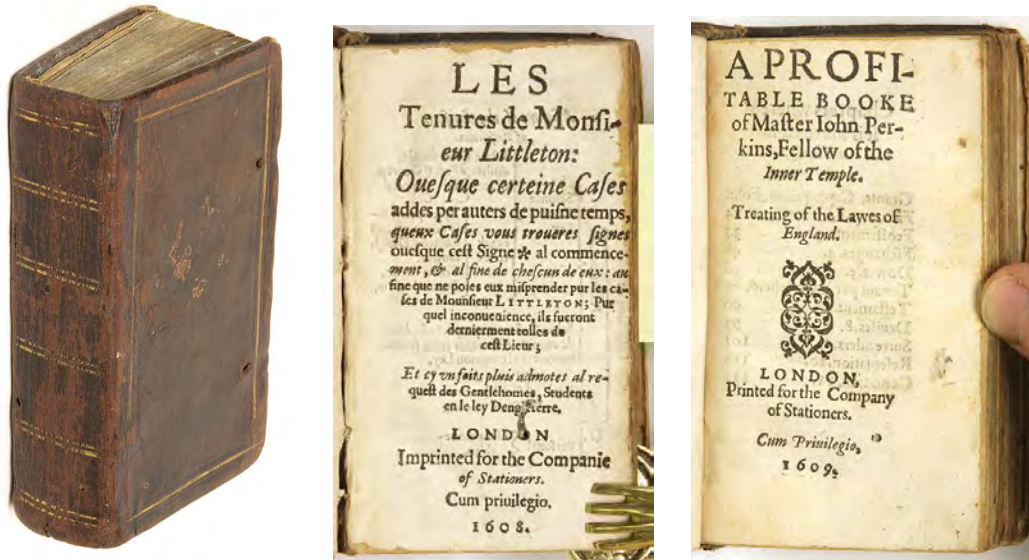 LES
Tenures de Monſi-
eur Littleton:
Oueſque certeine Caſes
addes per auters de puiſne temps,
queux Caſes vous troueres ſignes
oueſque ceſt Signe * al commence-
ment, & al fine de cheſcun de eux: au
fine que ne poies eux miſprender pur les ca-
ſes de Mounſieur LITTLETON; Pur
quel inconuenience, ils fueront
dernierment tolles de
ceſt Lieur;
Et cy vn foits pluis admotes al re-
queſt des Gentlehomes, Students
en le ley Dengleterre.
LONDON
Imprinted for the Companie
of Stationers.
Cum priuilegio.
1608.
A PROFI-
TABLE BOOKE
of Maſter Iohn Per-
kins, Fellow of the
Inner Temple.
Treating of the Lawes of
England.
LONDON,
Printed for the Company
of Stationers.
Cum Priuilegio,
1609.